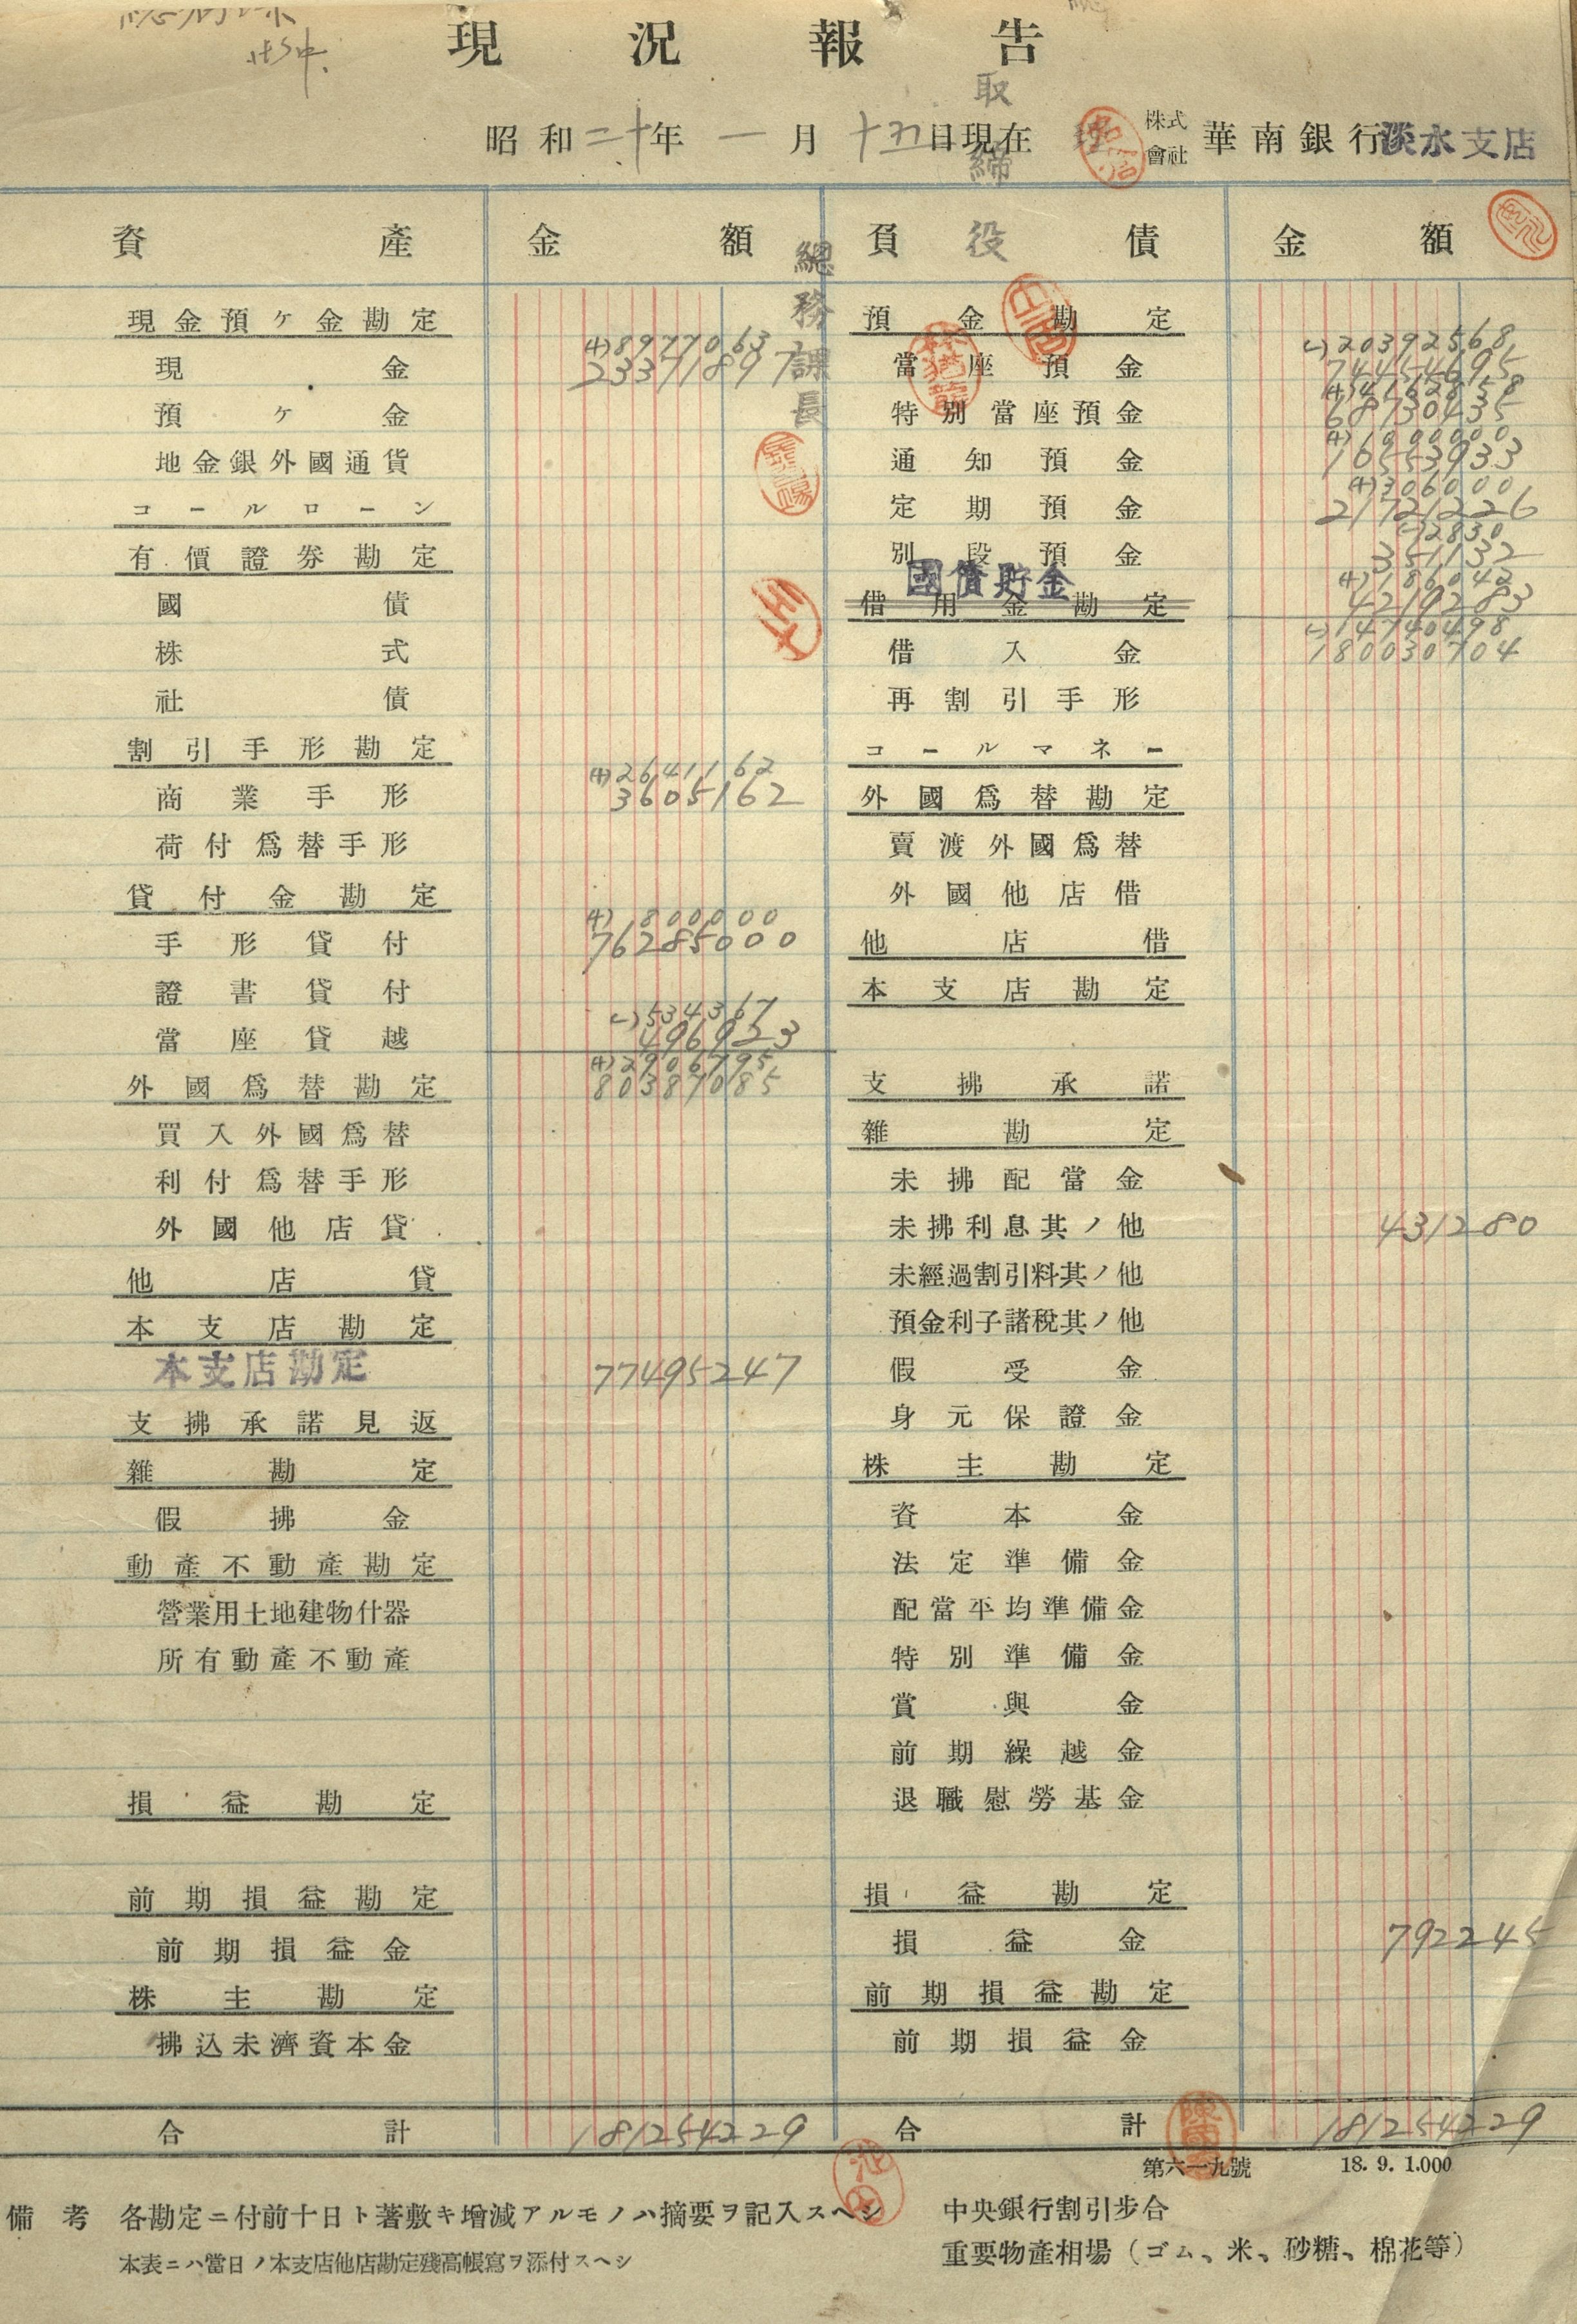 現況報告
昭和二十年一月十五日現在 株式會社 華南銀行淡水支店
取締役
總務課長
資產 金額
現金預ケ金勘定
(+)8977063
現金 23371897
預ケ金
地金銀外國通貨
コールローン
有價證券勘定
國債
株式
社債
割引手形勘定
(+)2641162
商業手形 3605162
荷付爲替手形
貸付金勘定
(+)800000
手形貸付 76285000
證書貸付
(-)534367
當座貸越 496923
(+)2906795
外國爲替勘定 80387085
買入外國爲替
利付爲替手形
外國他店貸
他店貸
本支店勘定
本支店勘定 77495247
支拂承諾見返
雜勘定
假拂金
動產不動產勘定
營業用土地建物什器
所有動產不動產
損益勘定
前期損益勘定
前期損益金
株主勘定
拂込未濟資本金
合計 181254229
負債 金額
預金勘定
(-)20392568
當座預金 74454695
(+)4162858
特別當座預金 68730435
(+)1000000
通知預金 10553933
(+)306000
定期預金 21721226
(-)2830
別段預金 351132
國債貯金 (+)186042
借用金勘定 4219283
(-)14740498
借入金 180030704
再割引手形
コールマネー
外國爲替勘定
賣渡外國爲替
外國他店借
他店借
本支店勘定
支拂承諾
雜勘定
未拂配當金
未拂利息其ノ他 431280
未經過割引料其ノ他
預金利子諸稅其ノ他
假受金
身元保證金
株主勘定
資本金
法定準備金
配當平均準備金
特別準備金
賞與金
前期繰越金
退職慰勞基金
損益勘定
損益金 792245
前期損益勘定
前期損益金
合計 181254229
第六一九號 18. 9. 1.000
備考 各勘定ニ付前十日ト著敷キ增減アルモノハ摘要ヲ記入スヘシ
本表ニハ當日ノ本支店他店勘定殘高帳寫ヲ添付スヘシ
中央銀行割引步合
重要物產相場（ゴム、米、砂糖、棉花等）